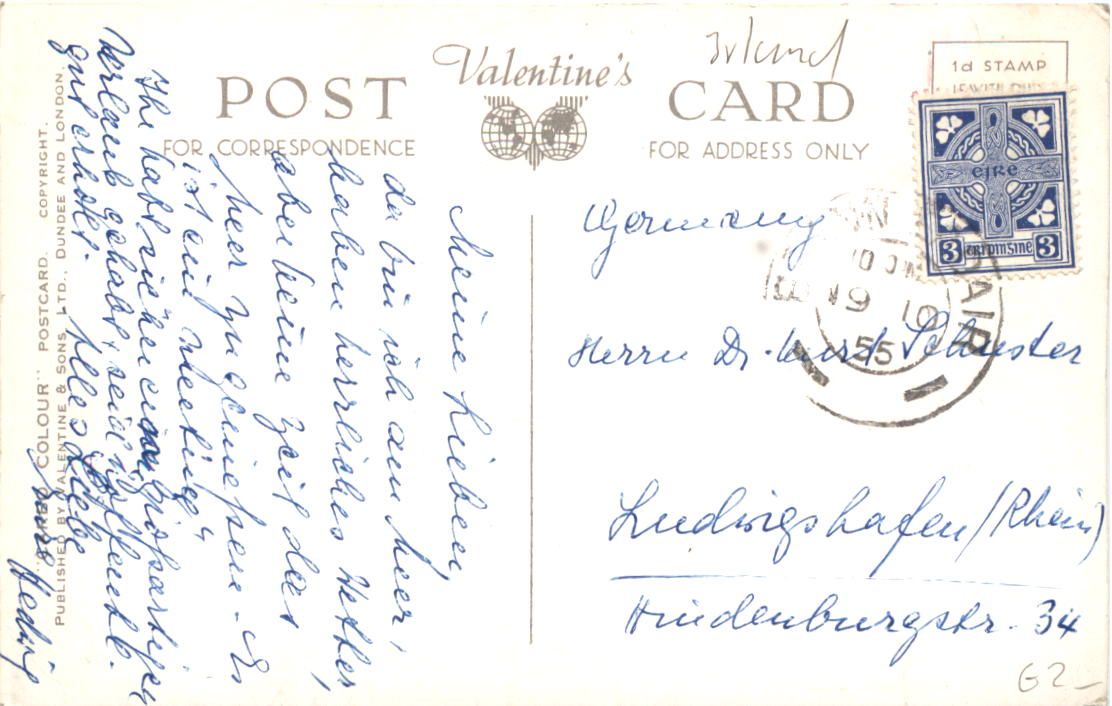 Irland
Valentine's
POST CARD
FOR CORRESPONDENCE
FOR ADDRESS ONLY
1d STAMP
EIRE
3 3
19 10
55
Germany
Herrn Dr. Kurt Schuster
Ludwigshafen/Rhein)
Hindenburgstr. 34
G2-
Meine Lieben,
da bin ich am Meer,
haben herrliches Wetter,
aber keine Zeit das
Meer zu genießen - Es
ist ein "Meeting"
Ihr habt sicher einen großartigen
Urlaub gehabt, seid hoffentl.
gut erholt. Alles Liebe
Eure Hedwig
COLOUR" POSTCARD. COPYRIGHT.
PUBLISHED BY VALENTINE & SONS, LTD., DUNDEE AND LONDON.